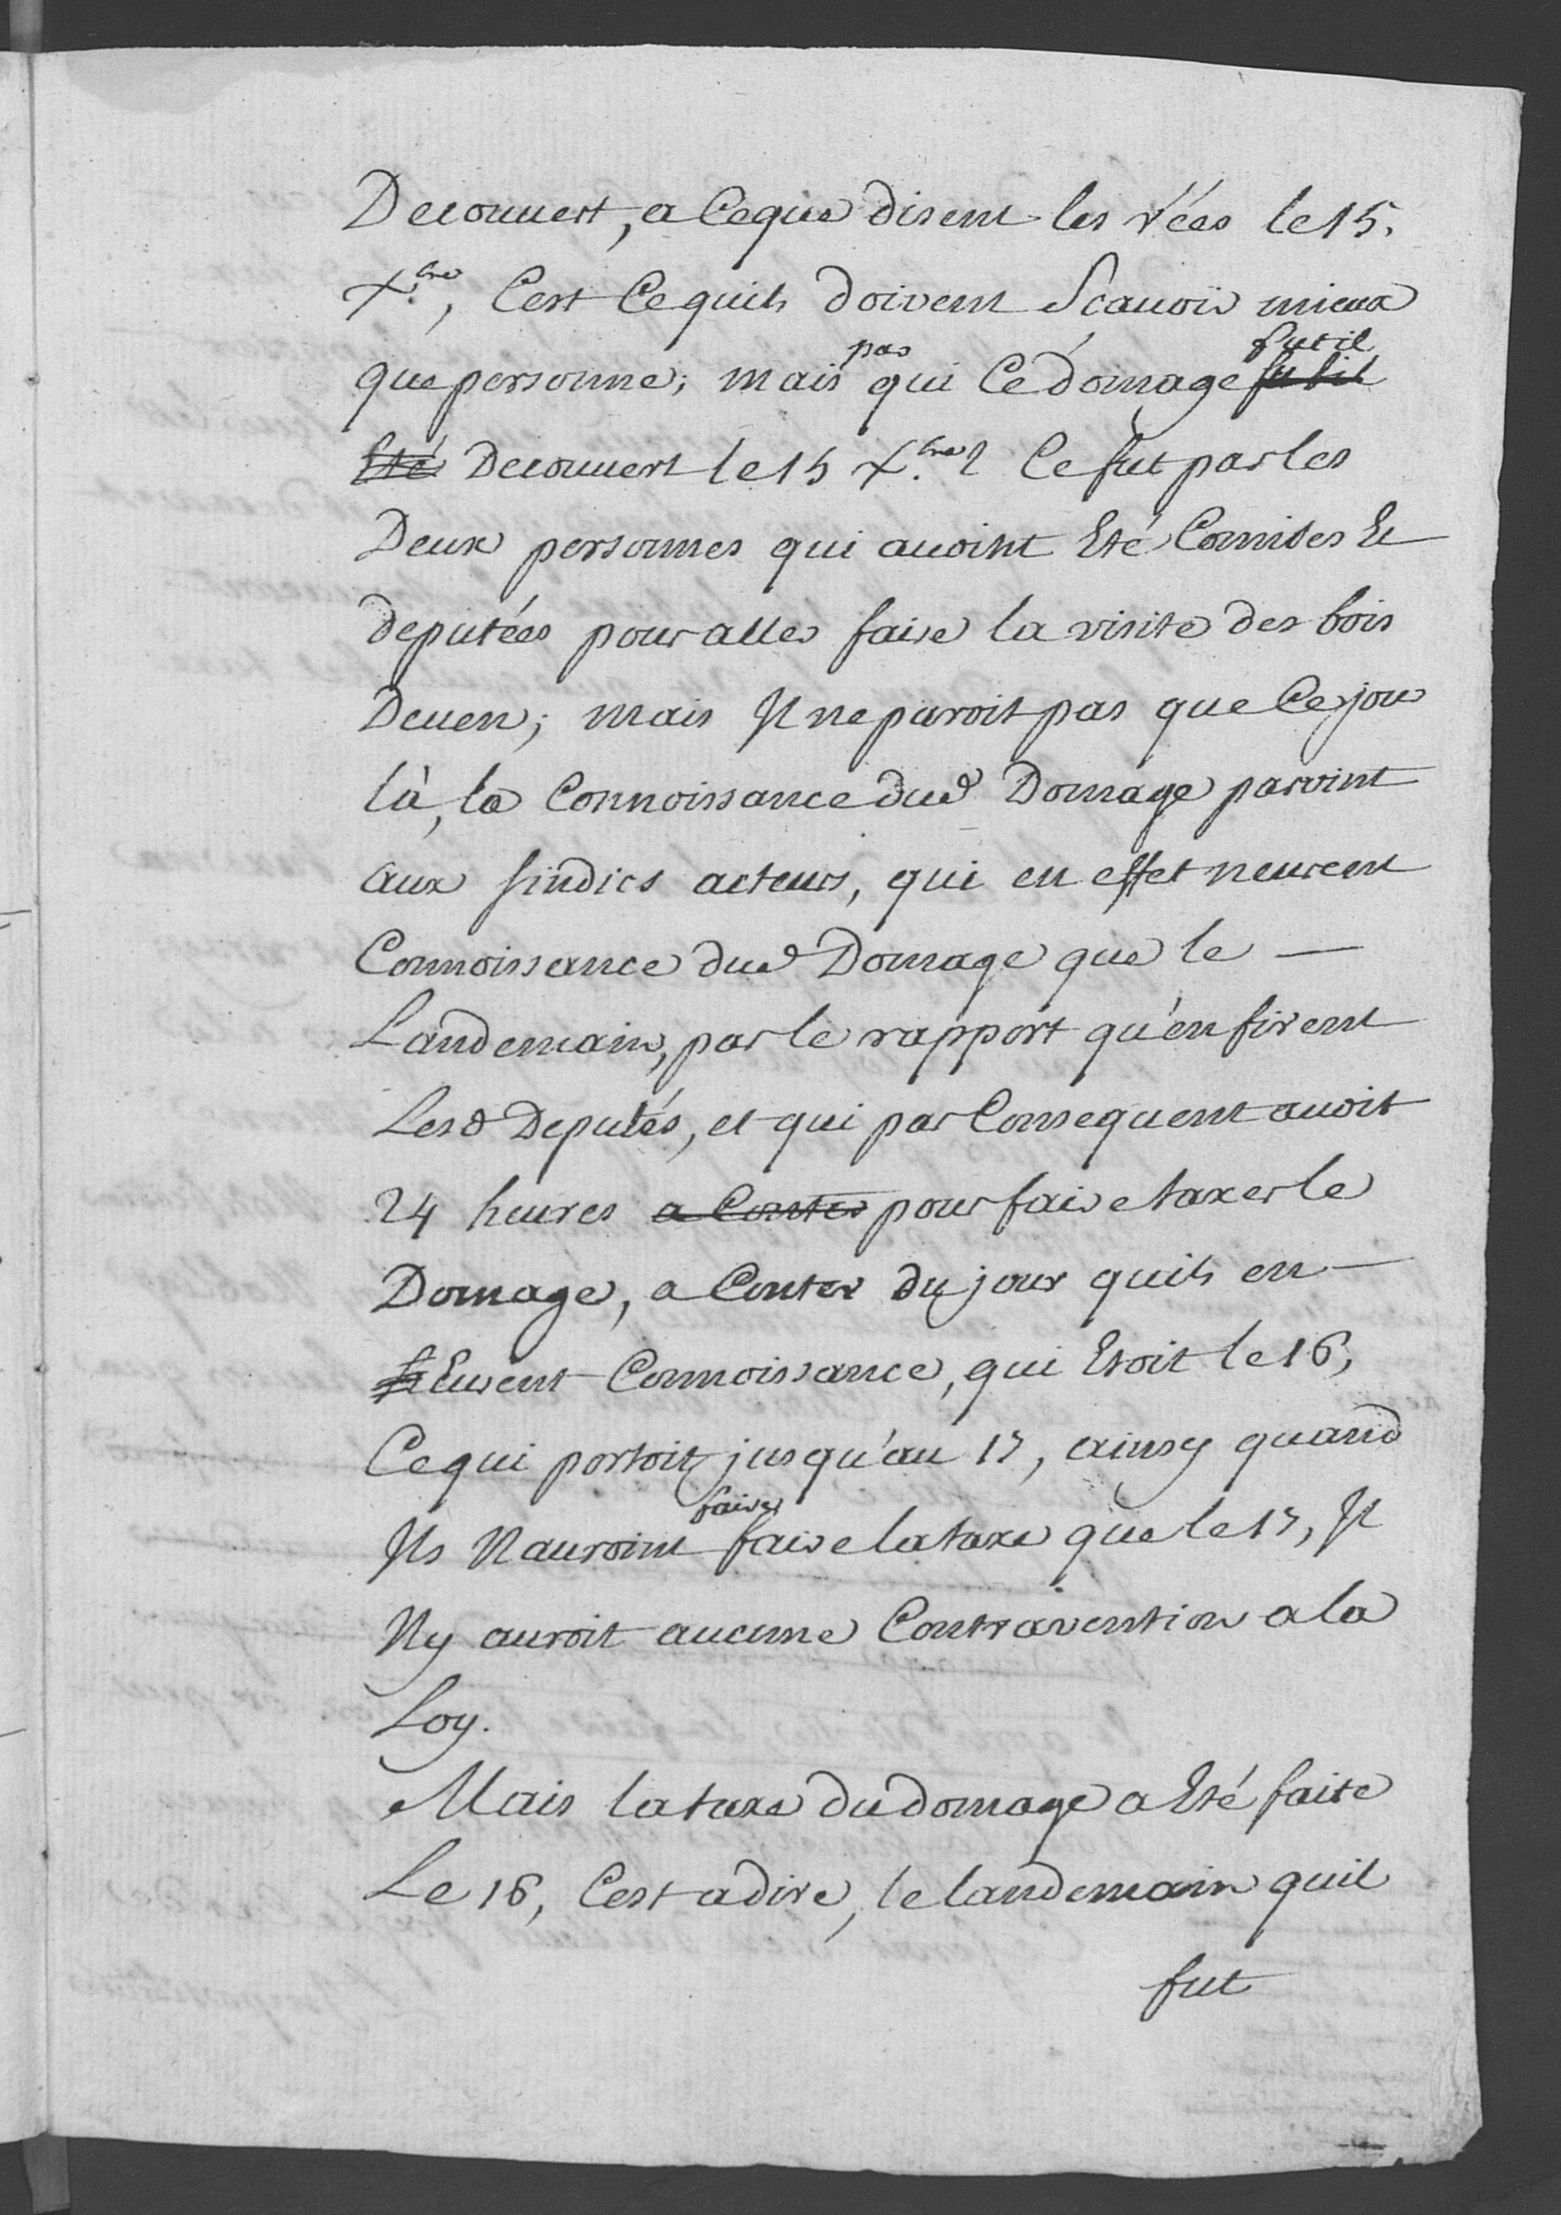 Decouvert, a Ceque disent les rées le 15.
Xbre, Cest Cequils doivent Scauoir mieux
que personne; mais par qui Cé domage futil
Decouvert le 15 Xbre? Ce fut par les
Deux personnes qui auoint Eté Comises Et
deputées pour aller faire la visite des bois
Deuen; mais Il ne paroit pas que Ce jour
là, la Connoissance dud Domage parvint
aux sindics acteurs, qui en effet neurent
Connoissance dud Domage que le —
Landemain, par le rapport qu'en firent
Lesd Deputés, et qui par Consequent auoit
24 heures a Conter pour faire taxer le
Domage, a Conter du jour quils en —
Eurent Connoissance, qui Etoit le 16,
Cequi portoit jusqu'au 17, ainsy quand
Ils Nauroint faire faire la taxe que le 17, Il
Ny auroit aucune Contravention a la
Loy.
Mais la taxe du domage a Eté faite
Le 16, Cest a dire, le landemain quil
fut